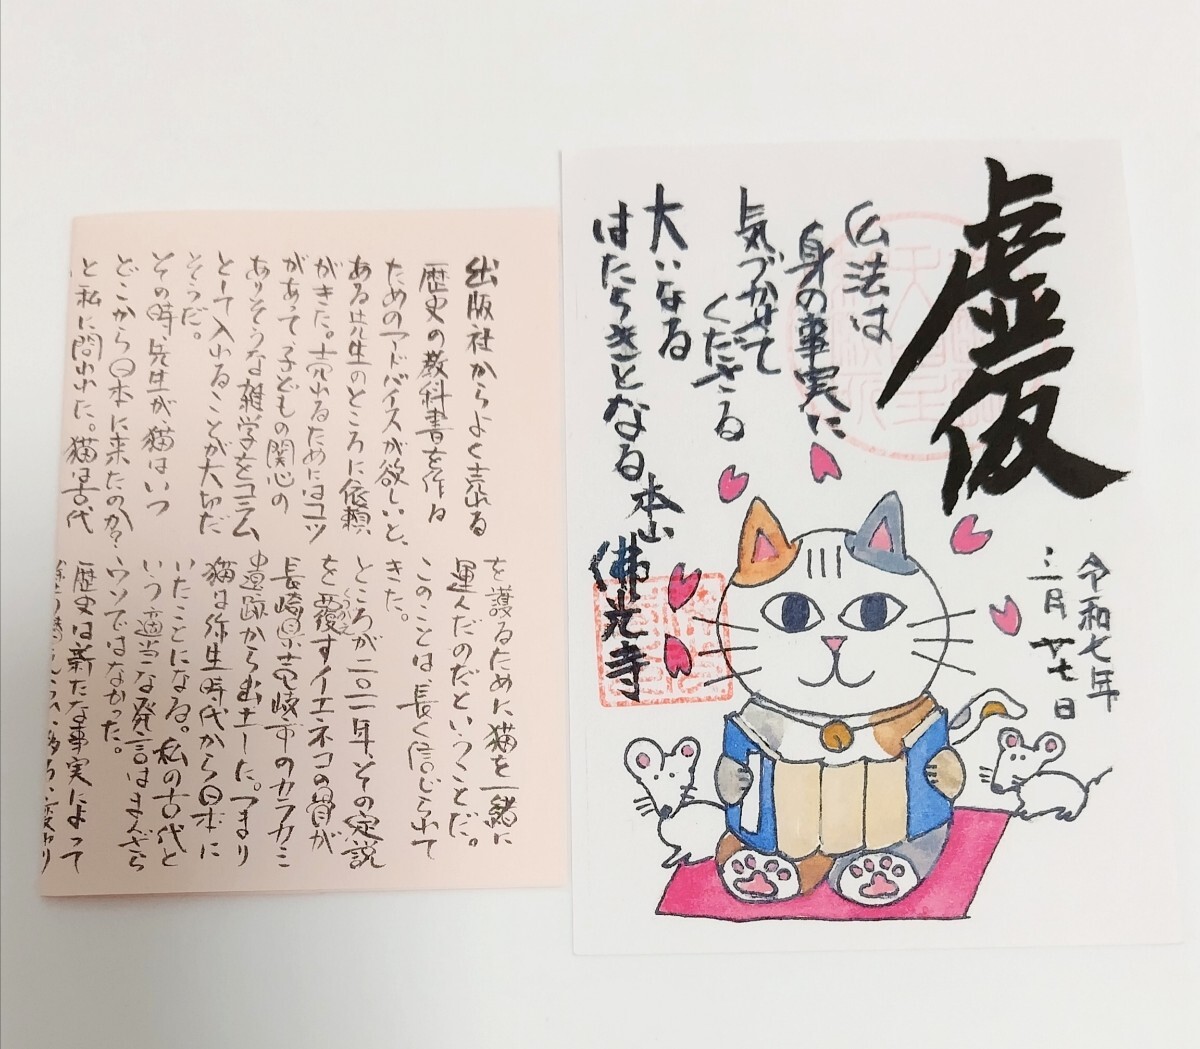 出版社からよく売れる
歴史の教科書を作る
ためのアドバイスが欲しいと、
ある先生のところに依頼
がきた。売れるためにはコツ
があって、子どもの関心の
ありそうな雑学をコラム
として入れることが大切だ
そうだ。
その時、先生が猫はいつ
どこから日本に来たのか?
と私に問われた。猫は古代
を護るために猫を一緒に
運んだのだということだ。
このことは、長く信じられて
きた。
ところが二〇一一年、その定説
を覆すイエネコの骨が
長崎県壱岐市のカラカミ
遺跡から出土した。つまり
猫は弥生時代から日本に
いたことになる。私の古代と
いう適当な発言はまんざら
ウソではなかった。
歴史は新たな事実によって
虚仮
仏法は
身の事実に
気づかせて
くださる
大いなる
はたらきとなる
本山
佛光寺
令和七年
二月廿七日